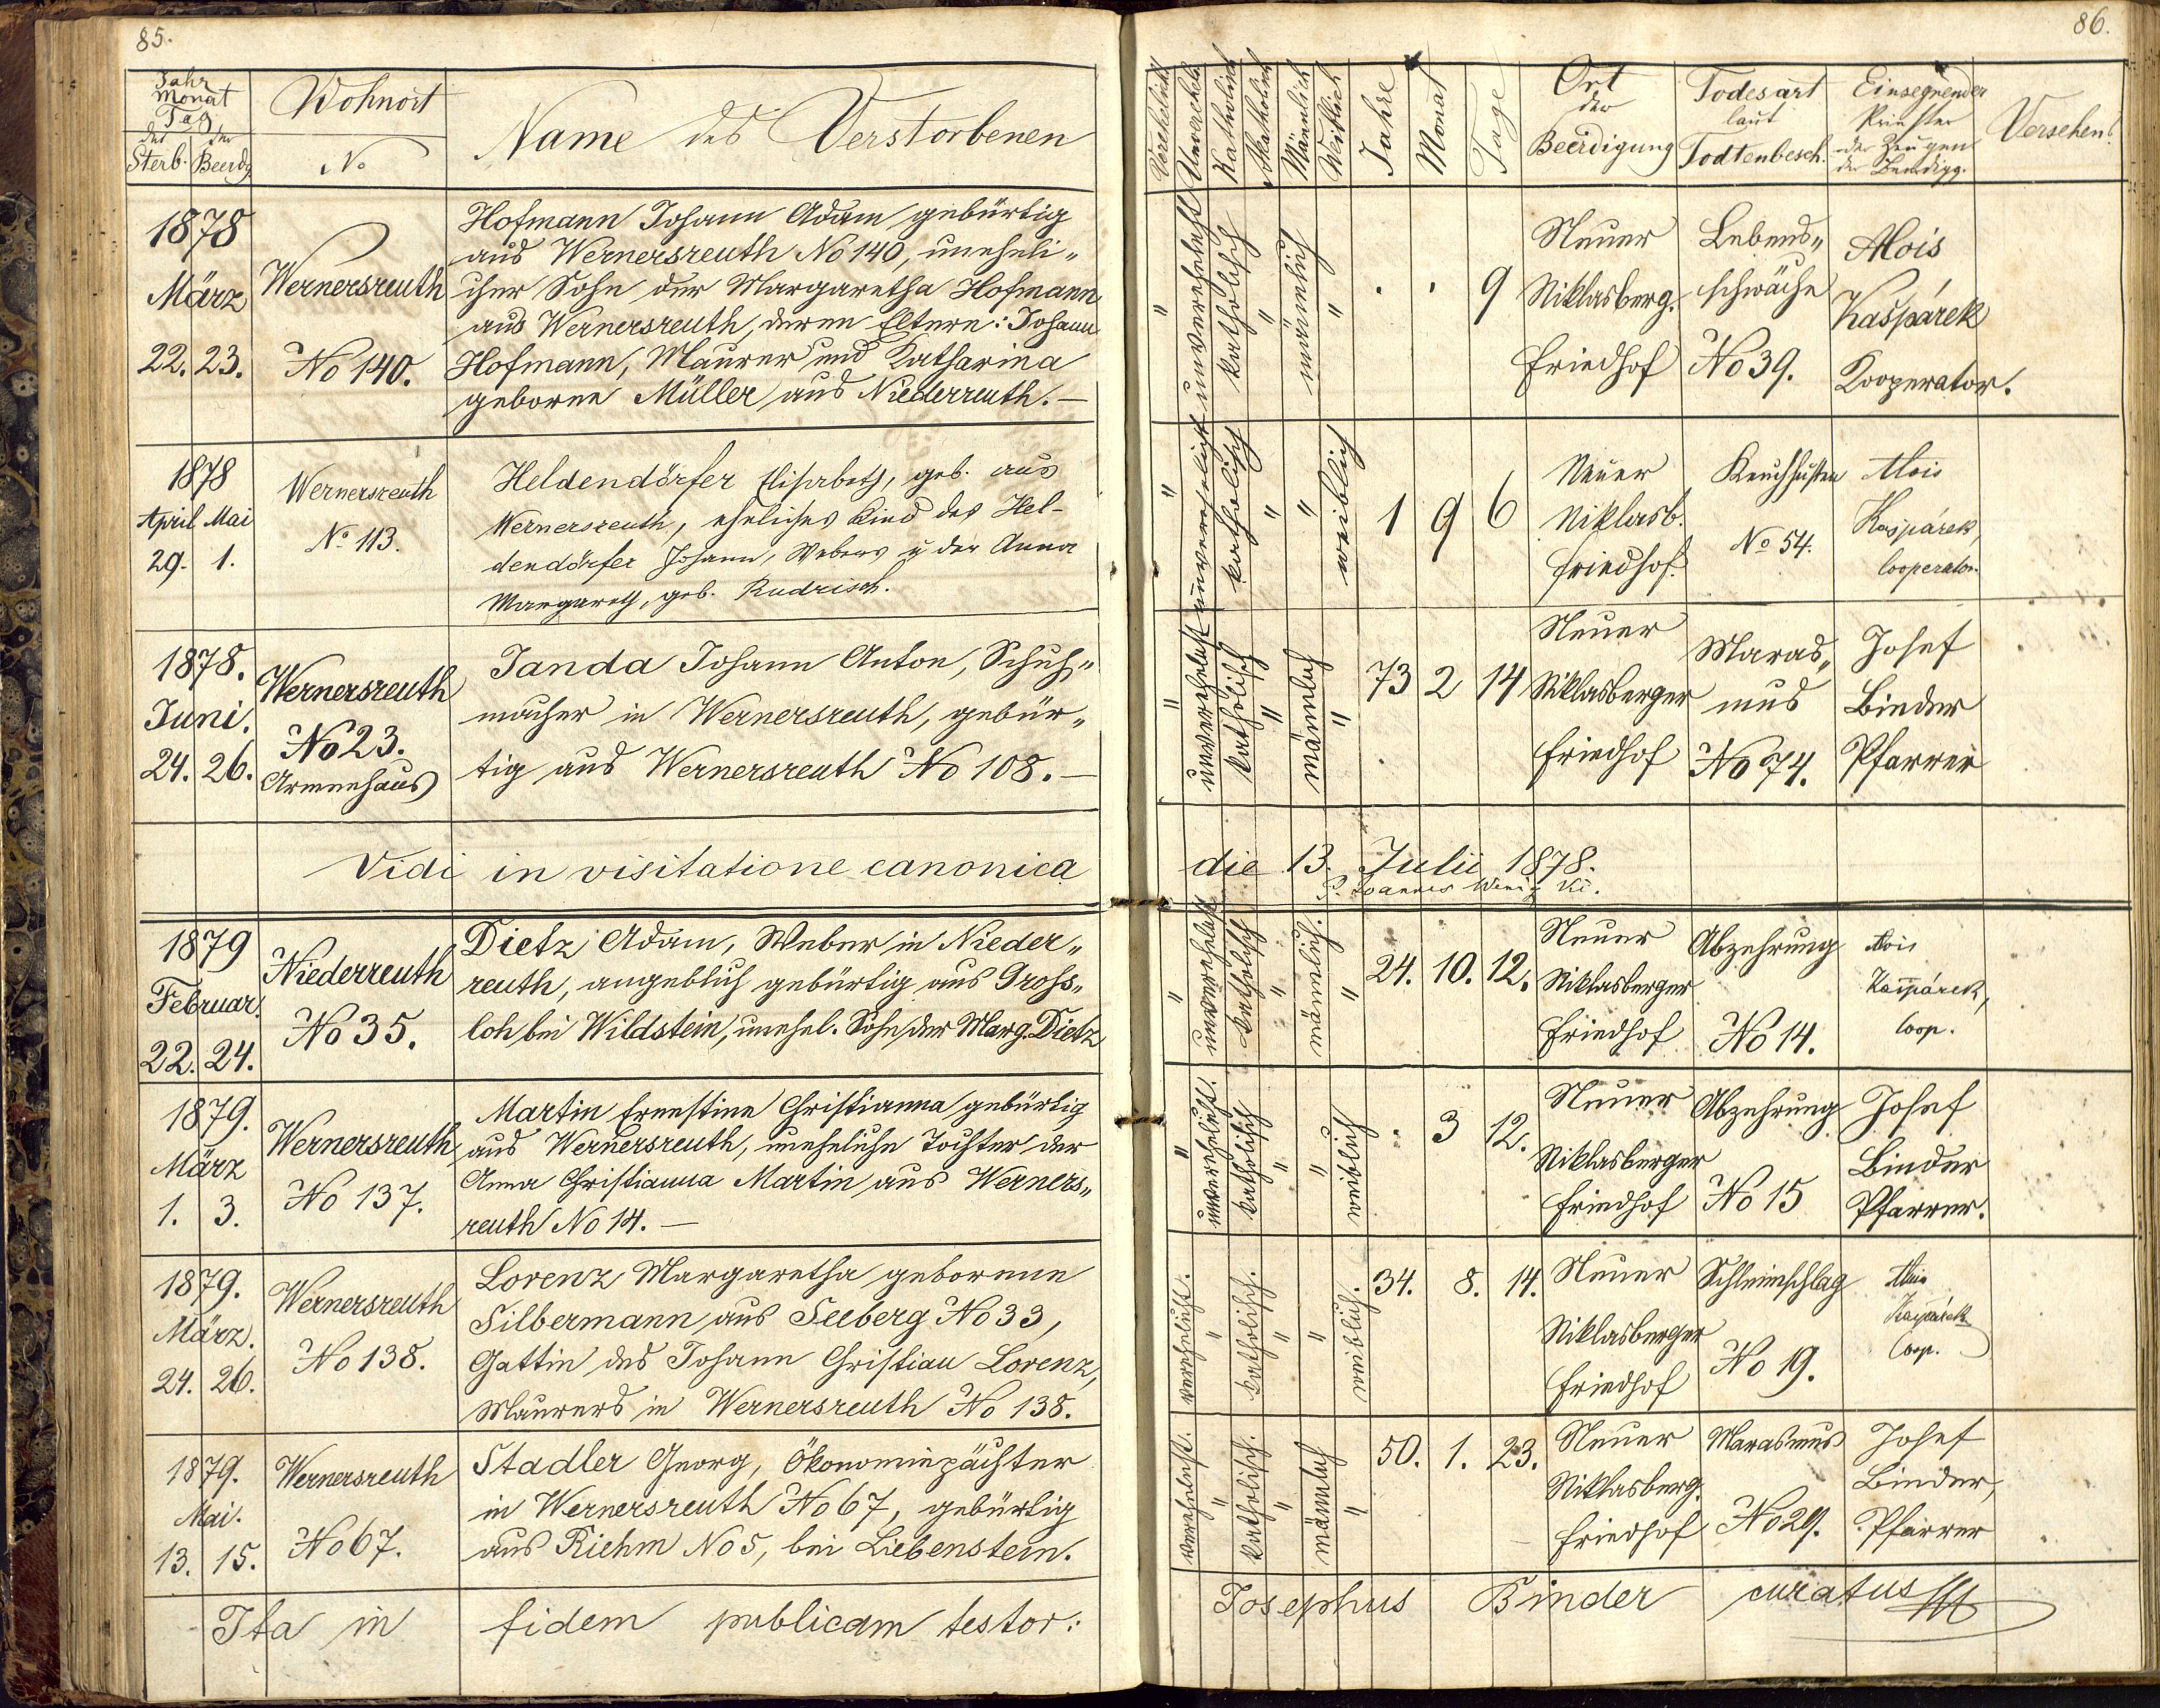 85.
Jahr
Monat
Tag
der der
Sterb. Beerdg.
Wohnort
No
Name des Verstorbenen
1878
März
22. 23.
Wernersreuth
No 140.
Hofmann Johann Adam gebürtig
aus Wernersreuth No 140, uneheli„
cher Sohn der Margaretha Hofmann
aus Wernersreuth, deren Eltern: Johann
Hofmann, Maurer und Katharina
geborne Müller aus Niederreuth. —
1878
April Mai
29. 1.
Wernersreuth
No 113.
Heldendörfer Elisabeth, geb. aus
Wernersreuth, eheliches Kind des Hel-
dendörfer Johann, Webers u der Anna
Margareth, geb. Kudrisch.
1878.
Juni.
24. 26.
Wernersreuth
No 23.
Armenhaus
Janda Johann Anton, Schuh„
macher in Wernersreuth, gebür„
tig aus Wernersreuth No 108. —
Vidi in visitatione canonica
1879
Februar.
22. 24.
Niederreuth
No 35.
Dietz Adam, Weber in Nieder„
reuth, angeblich gebürtig aus Gross„
loh bei Wildstein, unehel. Sohn der Marg. Dietz
1879.
März
1. 3.
Wernersreuth
No 137.
Martin Ernestine Christianna gebürtig
aus Wernersreuth, uneheliche Tochter der
Anna Christianna Martin aus Werners„
reuth No 14. —
1879.
März.
24. 26.
Wernersreuth
No 138.
Lorenz Margaretha geborene
Silbermann aus Seeberg No 33,
Gattin des Johann Christian Lorenz,
Maurers in Wernersreuth No 138.
1879.
Mai.
13. 15.
Wernersreuth
No 67.
Stadler Georg, Ökonomiepächter
in Wernersreuth No 67, gebürtig
aus Riehm No 5, bei Liebenstein.
Ita in fidem publicam testor:
86.
Verehelicht
Unverehel.
Katholisch
Akatholisch
Männlich
Weiblich
Jahre
Monat
Tage
Ort
der
Beerdigung
Todesart
laut
Todtenbesch.
Einsegnender
Priester
der Zeugen
der Beerdigg.
Versehen?
" unverehelicht katholisch " männlich " . . 9
Neuer
Niklasberg.
Friedhof
Lebens„
schwäche
No 39.
Alois
Kašpárek
Kooperator.
" unverehelicht katholisch " " weiblich 1 9 6
Neuer
Niklasb.
Friedhof.
Keuchhusten
No 54.
Alois
Kašpárek,
Cooperator.
" unverehelicht katholisch " männlich " 73 2 14
Neuer
Niklasberger
Friedhof
Maras„
mus
No 74.
Josef
Binder
Pfarrer
die 13. Julii 1878.
P. Joannes Wenig
" unverehelicht katholisch " männlich. " 24. 10. 12.
Neuer
Niklasberger
Friedhof
Abzehrung
No 14.
Alois
Kašpárek,
Coop.
" unverehelicht. katholisch " " weiblich . 3 12.
Neuer
Niklasberger
Friedhof
Abzehrung
No 15
Josef
Binder
Pfarrer.
verehelicht. " katholisch. " " weiblich. 34. 8. 14.
Neuer
Niklasberger
Friedhof
Schleimschlag
No 19.
Alois
Kašpárek
Coop.
verehelicht. " katholisch. " männlich " 50. 1. 23.
Neuer
Niklasberg.
Friedhof
Marasmus
No 29.
Josef
Binder,
Pfarrer
Josephus Binder curatus